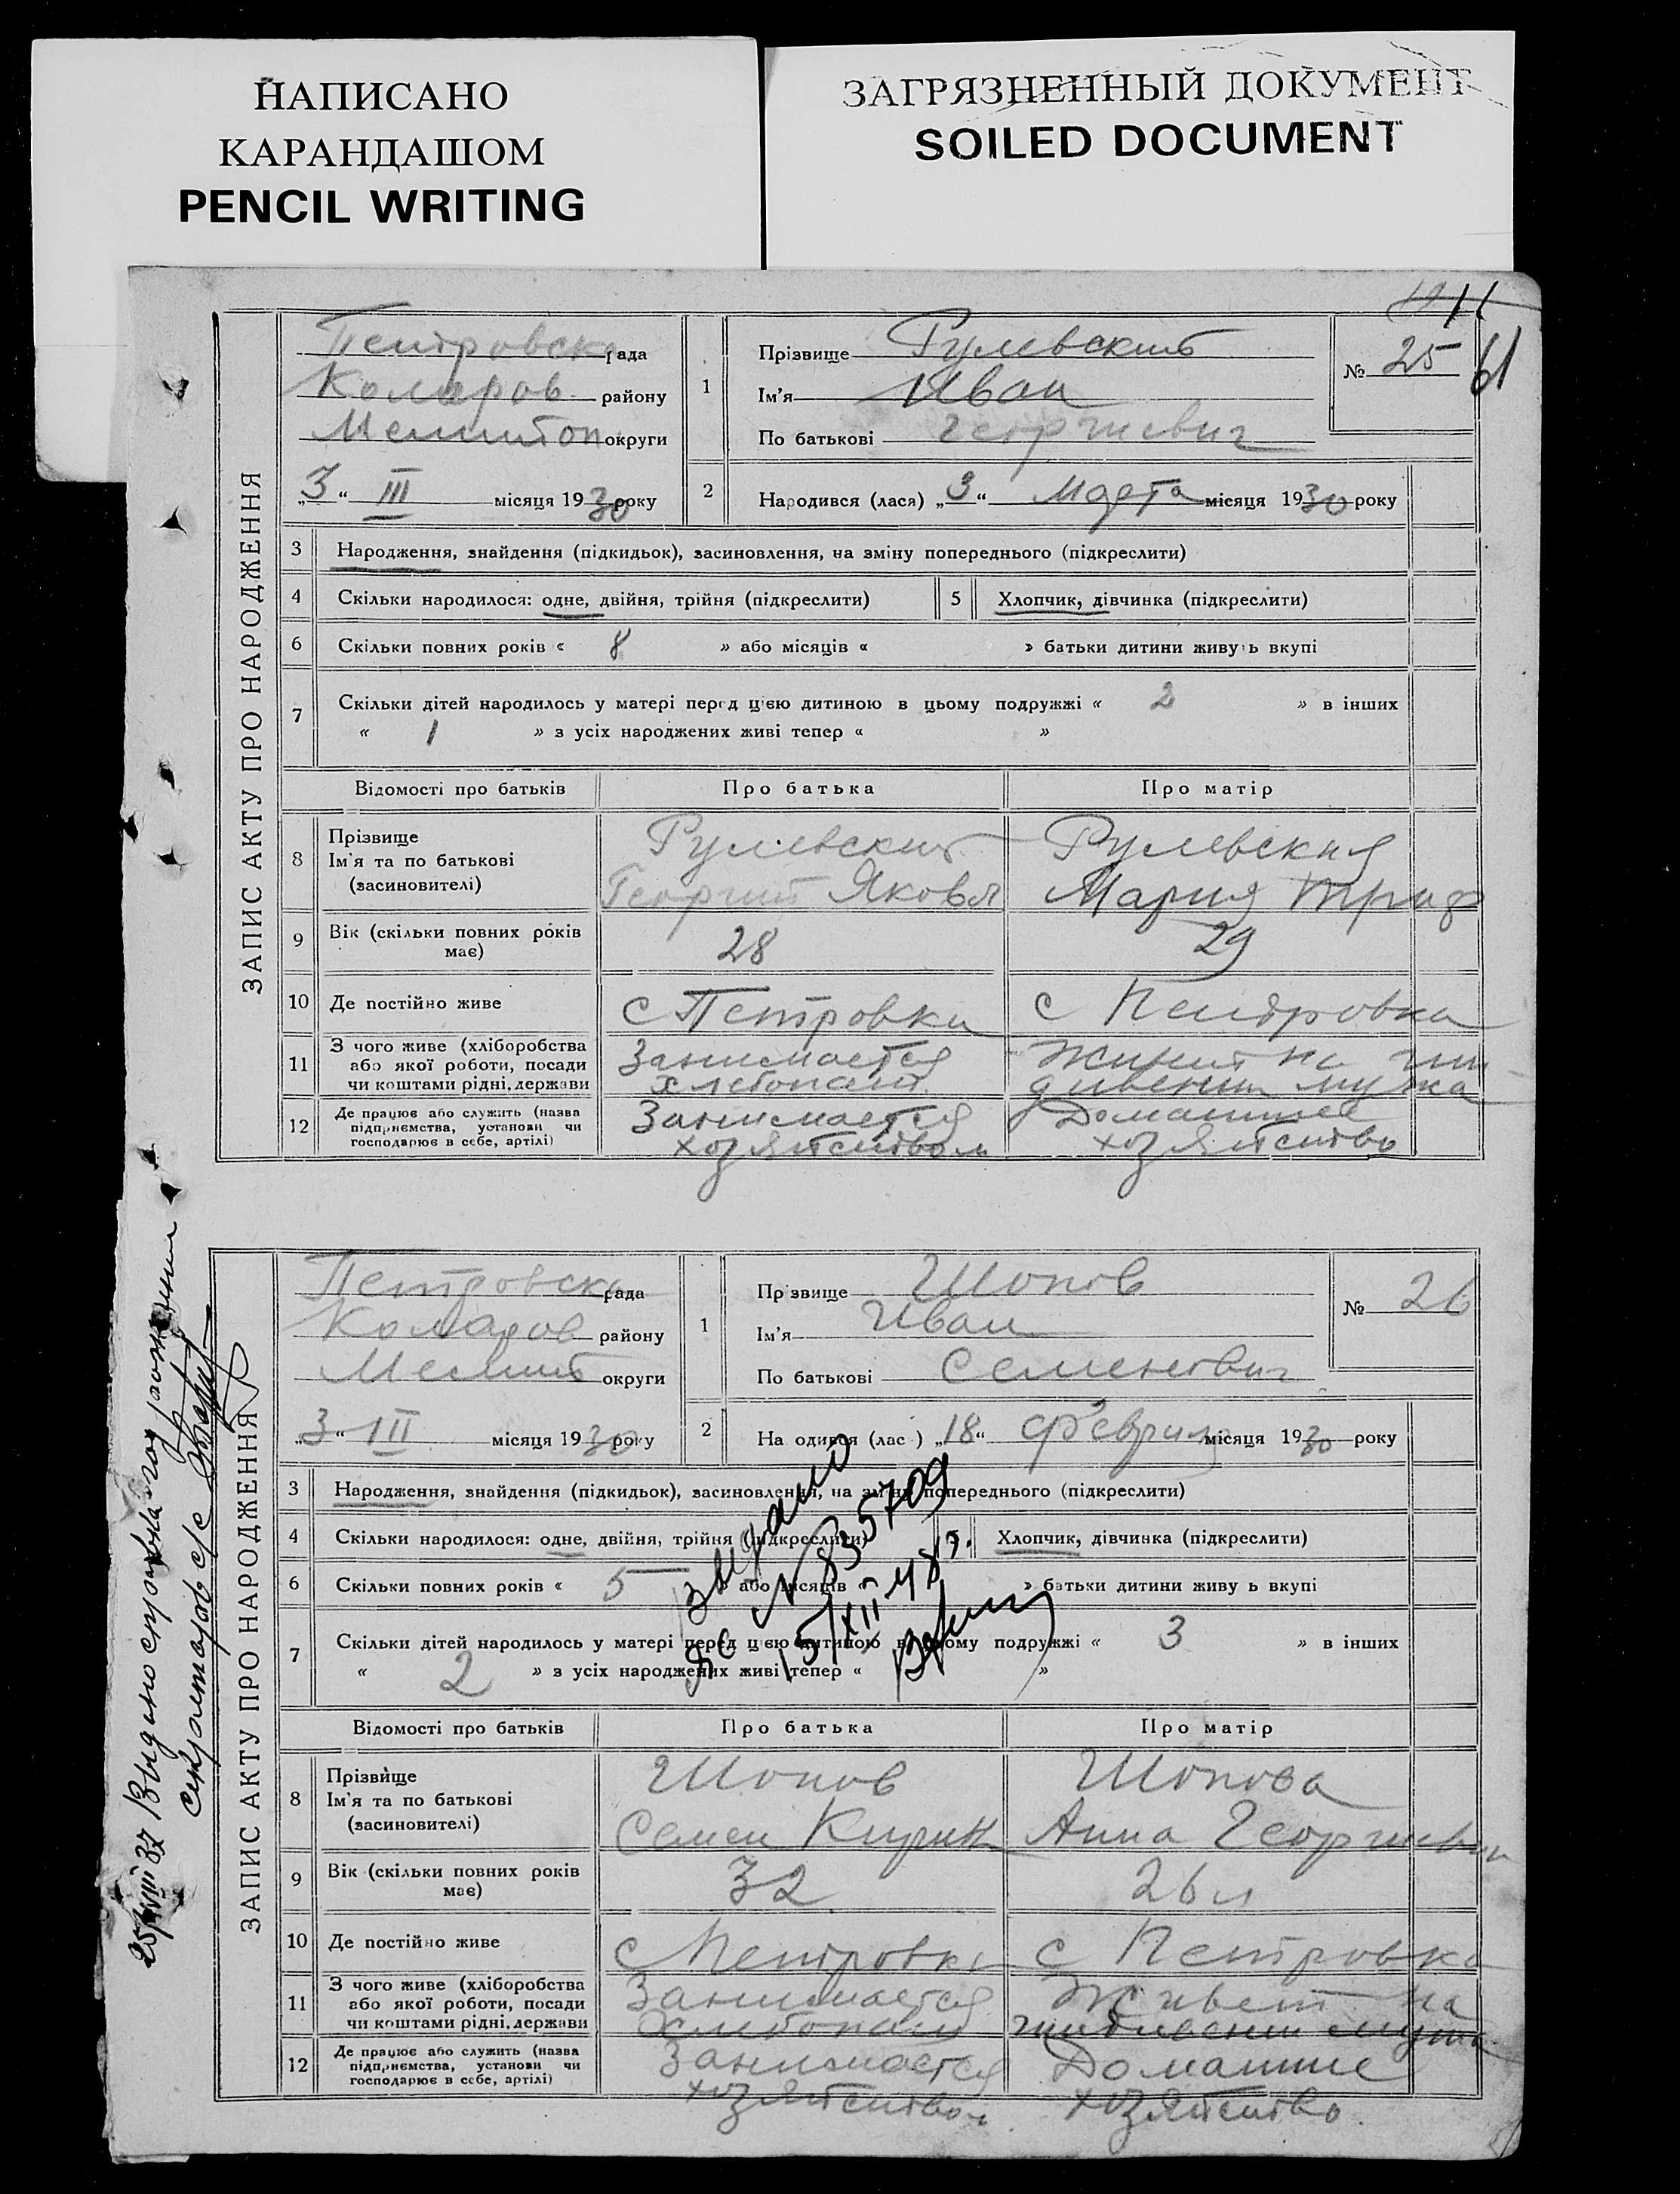 НАПИСАНО
КАРАНДАШОМ
PENCIL WRITING
ЗАГРЯЗНЕННЫЙ ДОКУМЕНТ
SOILED DOCUMENT
11
61
ЗАПИС АКТУ ПРО НАРОДЖЕННЯ
Петровска рада
Коларов району
Мелитоп округи
„3“ III місяця 1930 року
1 Прізвище Гулевский
Ім'я Иван
По батькові Георгиевич
№ 25
2 Народився (лася) „3“ Марта місяця 1930 року
3 Народження, знайдення (підкидьок), засиновлення, на зміну попереднього (підкреслити)
4 Скільки народилося: одне, двійня, трійня (підкреслити) 5 Хлопчик, дівчинка (підкреслити)
6 Скільки повних років « 8 » або місяців « » батьки дитини живуть вкупі
7 Скільки дітей народилось у матері перед цією дитиною в цьому подружжі « 2 » в інших
« 1 » з усіх народжених живі тепер « »
Відомості про батьків Про батька Про матір
8 Прізвище Гулевский Гулевская
Ім'я та по батькові
(засиновителі) Георгий Яковл Мария Триф
9 Вік (скільки повних років
має) 28 29
10 Де постійно живе с Петровки с Петровка
11 З чого живе (хліборобства
або якої роботи, посади Занимается
чи коштами рідні, держави хлебопаш мужа
12 Де працює або служить (назва Занимается Домашнее
підприємства, установи чи
господарює в себе, артілі) хозяйством хозяйство
ЗАПИС АКТУ ПРО НАРОДЖЕННЯ
Петровска рада
Коларов району
Мелит округи
„3“ III місяця 1930 року
1 Прізвище Шопов
Ім'я Иван
По батькові Семенович
№ 26
2 Народився (лася) „18“ Февраля місяця 1930 року
3 Народження, знайдення (підкидьок), засиновлення, на зміну попереднього (підкреслити)
4 Скільки народилося: одне, двійня, трійня (підкреслити) 5 Хлопчик, дівчинка (підкреслити)
6 Скільки повних років « 5 » або місяців « » батьки дитини живуть вкупі
7 Скільки дітей народилось у матері перед цією дитиною в цьому подружжі « 3 » в інших
« 2 » з усіх народжених живі тепер « »
Відомості про батьків Про батька Про матір
8 Прізвище Шопов Шопова
Ім'я та по батькові
(засиновителі) Семен Кирил Анна Георгиевн
9 Вік (скільки повних років
має) 32 26 л
10 Де постійно живе с Петровка с Петровка
11 З чого живе (хліборобства
або якої роботи, посади Занимается Живет на
чи коштами рідні, держави хлебопаш иждивении мужа
12 Де працює або служить (назва Занимается Домашние
підприємства, установи чи
господарює в себе, артілі) хозяйством хозяйство
№ 835709
15/XII-48 г.
Выдано справка год рождения
секретарь с/с